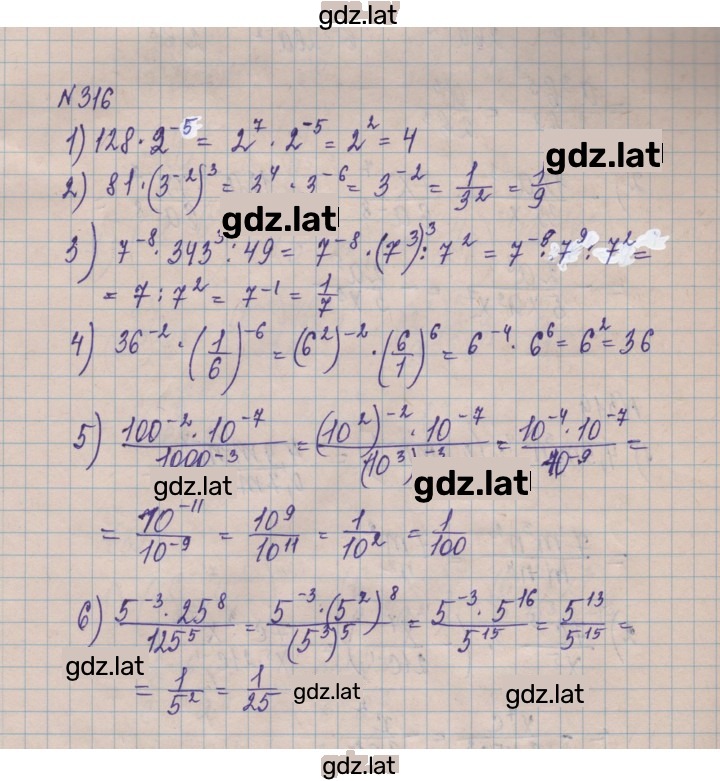 gdz.lat
№316
1) 128 · 2⁻⁵ = 2⁷ · 2⁻⁵ = 2² = 4
gdz.lat
2) 81 · (3⁻²)³ = 3⁴ · 3⁻⁶ = 3⁻² = 1/3² = 1/9
gdz.lat
3) 7⁻⁸ · 343³ : 49 = 7⁻⁸ · (7³)³ : 7² = 7⁻⁸ · 7⁹ : 7² =
= 7 : 7² = 7⁻¹ = 1/7
4) 36⁻² · (1/6)⁻⁶ = (6²)⁻² · (6/1)⁶ = 6⁻⁴ · 6⁶ = 6² = 36
5) (100⁻² · 10⁻⁷)/1000⁻³ = ((10²)⁻² · 10⁻⁷)/(10³)⁻³ = (10⁻⁴ · 10⁻⁷)/10⁻⁹ =
gdz.lat gdz.lat
= 10⁻¹¹/10⁻⁹ = 10⁹/10¹¹ = 1/10² = 1/100
6) (5⁻³ · 25⁸)/125⁵ = (5⁻³ · (5²)⁸)/(5³)⁵ = (5⁻³ · 5¹⁶)/5¹⁵ = 5¹³/5¹⁵ =
gdz.lat
= 1/5² = 1/25
gdz.lat gdz.lat
gdz.lat